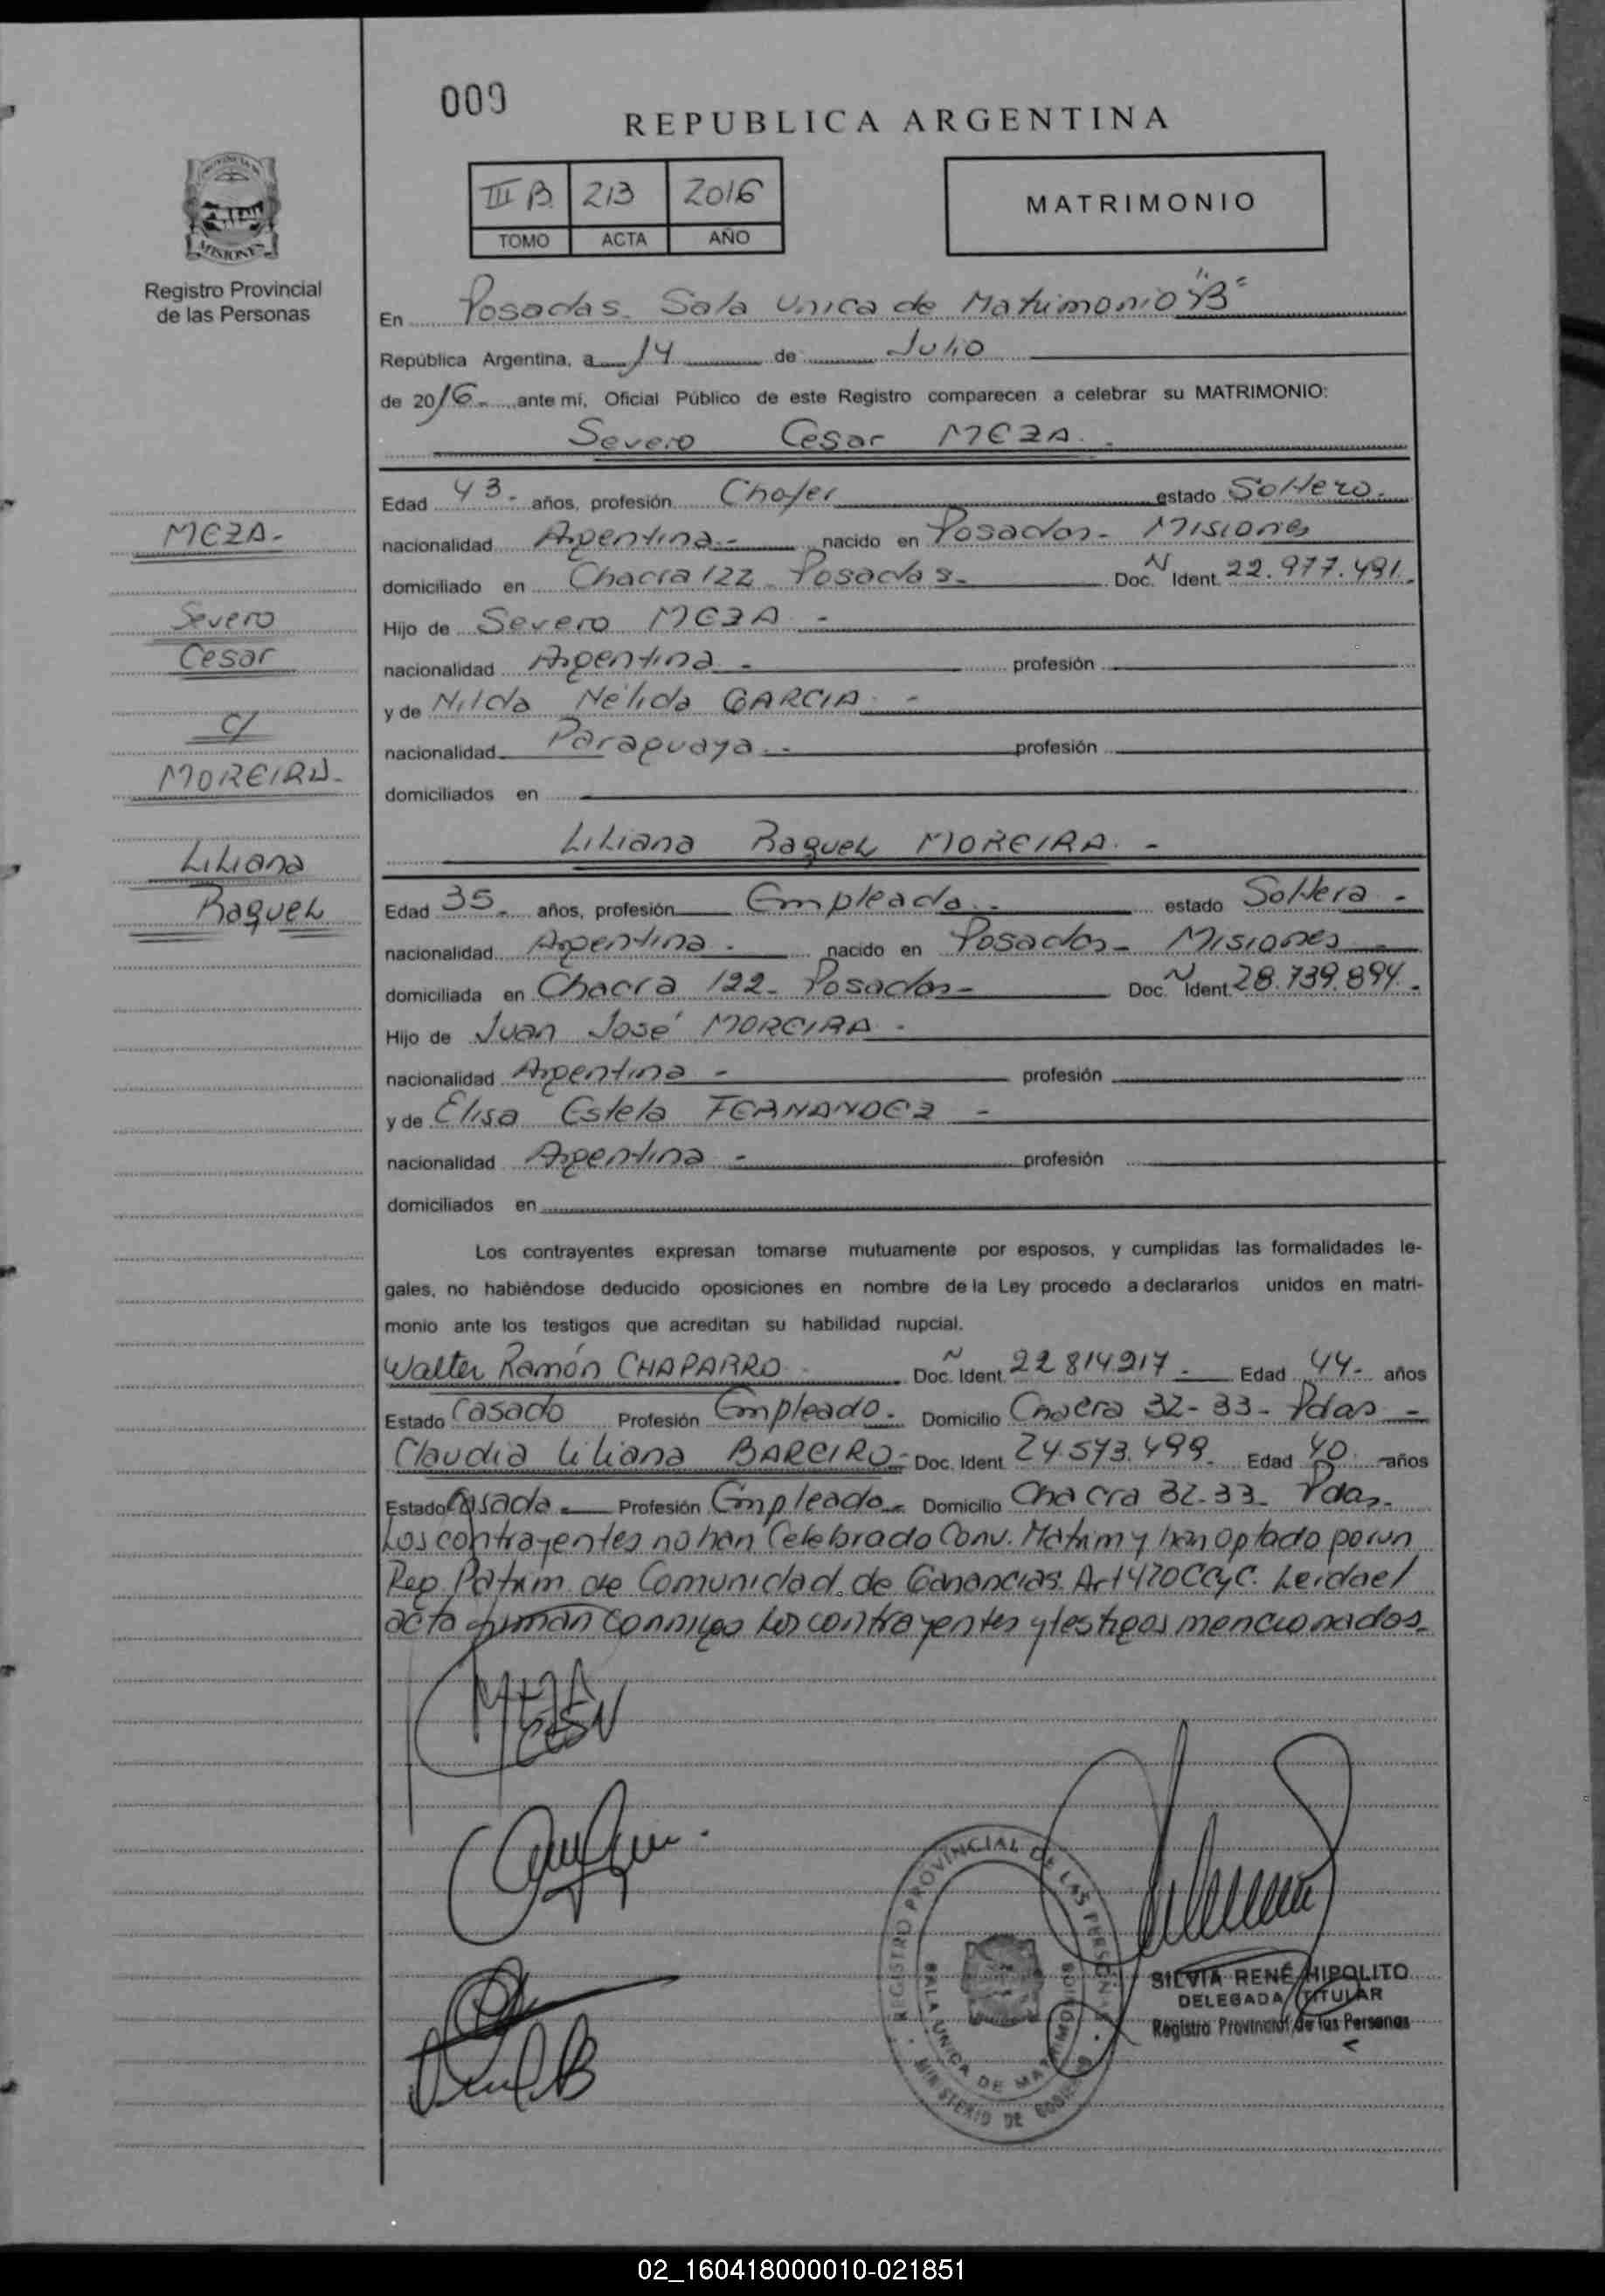 009
REPUBLICA ARGENTINA
III B 213 2016
TOMO ACTA AÑO
MATRIMONIO
PROVINCIA DE
MISIONES
Registro Provincial
de las Personas
En Posadas. Sala Unica de Matrimonio "B"
República Argentina, a 14 de Julio
de 2016 ante mí, Oficial Público de este Registro comparecen a celebrar su MATRIMONIO:
Severo Cesar MEZA.
Edad 43- años, profesión Chofer estado Soltero.
nacionalidad Argentina- nacido en Posadas- Misiones
domiciliado en Chacra 122- Posadas- Doc. N Ident. 22.977.491.
Hijo de Severo MEZA -
nacionalidad Argentina - profesión
y de Nilda Nélida GARCIA. -
nacionalidad Paraguaya. - profesión
domiciliados en
Liliana Raquel MOREIRA. -
Edad 35- años, profesión Empleada. - estado Soltera -
nacionalidad Argentina - nacido en Posadas- Misiones -
domiciliada en Chacra 122- Posadas- Doc. N Ident. 28.739.894. -
Hijo de Juan José MOREIRA -
nacionalidad Argentina - profesión
y de Elisa Estela FERNANDEZ -
nacionalidad Argentina - profesión
domiciliados en
MEZA-
Severo
Cesar
C/
MOREIRA-
Liliana
Raquel
Los contrayentes expresan tomarse mutuamente por esposos, y cumplidas las formalidades le-
gales, no habiéndose deducido oposiciones en nombre de la Ley procedo a declararlos unidos en matri-
monio ante los testigos que acreditan su habilidad nupcial.
Walter Ramón CHAPARRO Doc. N Ident. 22 814 217 - Edad 44- años
Estado Casado Profesión Empleado- Domicilio Chacra 32-33- Pdas -
Claudia Liliana BAREIRO- Doc. Ident. 24.573.499 Edad 40 años
Estado Casada - Profesión Empleada- Domicilio Chacra 32-33- Pdas-
Los contrayentes no han Celebrado Conv. Matrim y han optado por un
Reg. Patrim de Comunidad de Ganancias. Art 470 CCyC. Leida el
acta firman conmigo los contrayentes y testigos mencionados-
MEZA
REGISTRO PROVINCIAL DE LAS PERSONAS
SALA UNICA DE MATRIMONIOS
MINISTERIO DE GOBIERNO
SILVIA RENÉ HIPOLITO
DELEGADA TITULAR
Registro Provincial de las Personas
02_160418000010-021851